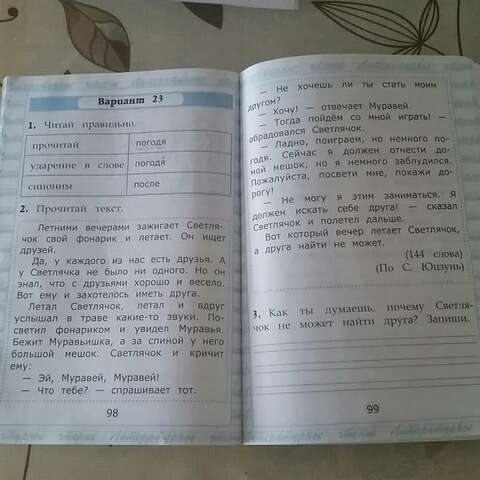 Вариант 23
1. Читай правильно.
прочитай погодя
ударение в слове погодя́
синоним после
2. Прочитай текст.
Летними вечерами зажигает Светля-
чок свой фонарик и летает. Он ищет
друзей.
Да, у каждого из нас есть друзья. А
у Светлячка не было ни одного. Но он
знал, что с друзьями хорошо и весело.
Вот ему и захотелось иметь друга.
Летал Светлячок, летал и вдруг
услышал в траве какие-то звуки. По-
светил фонариком и увидел Муравья.
Бежит Муравьишка, а за спиной у него
большой мешок. Светлячок и кричит
ему:
— Эй, Муравей, Муравей!
— Что тебе? — спрашивает тот.
98
— Не хочешь ли ты стать моим
другом?
— Хочу! — отвечает Муравей.
— Тогда пойдём со мной играть! —
обрадовался Светлячок.
— Ладно, поиграем, но немного по-
годя. Сейчас я должен отнести до-
мой мешок, но я немного заблудился.
Пожалуйста, посвети мне, покажи до-
рогу!
— Не могу я этим заниматься. Я
должен искать себе друга! — сказал
Светлячок и полетел дальше.
Вот который вечер летает Светлячок,
а друга найти не может.
(144 слова)
(По С. Юцзунь)
3. Как ты думаешь, почему Светля-
чок не может найти друга? Запиши.
99
Литературное чтение